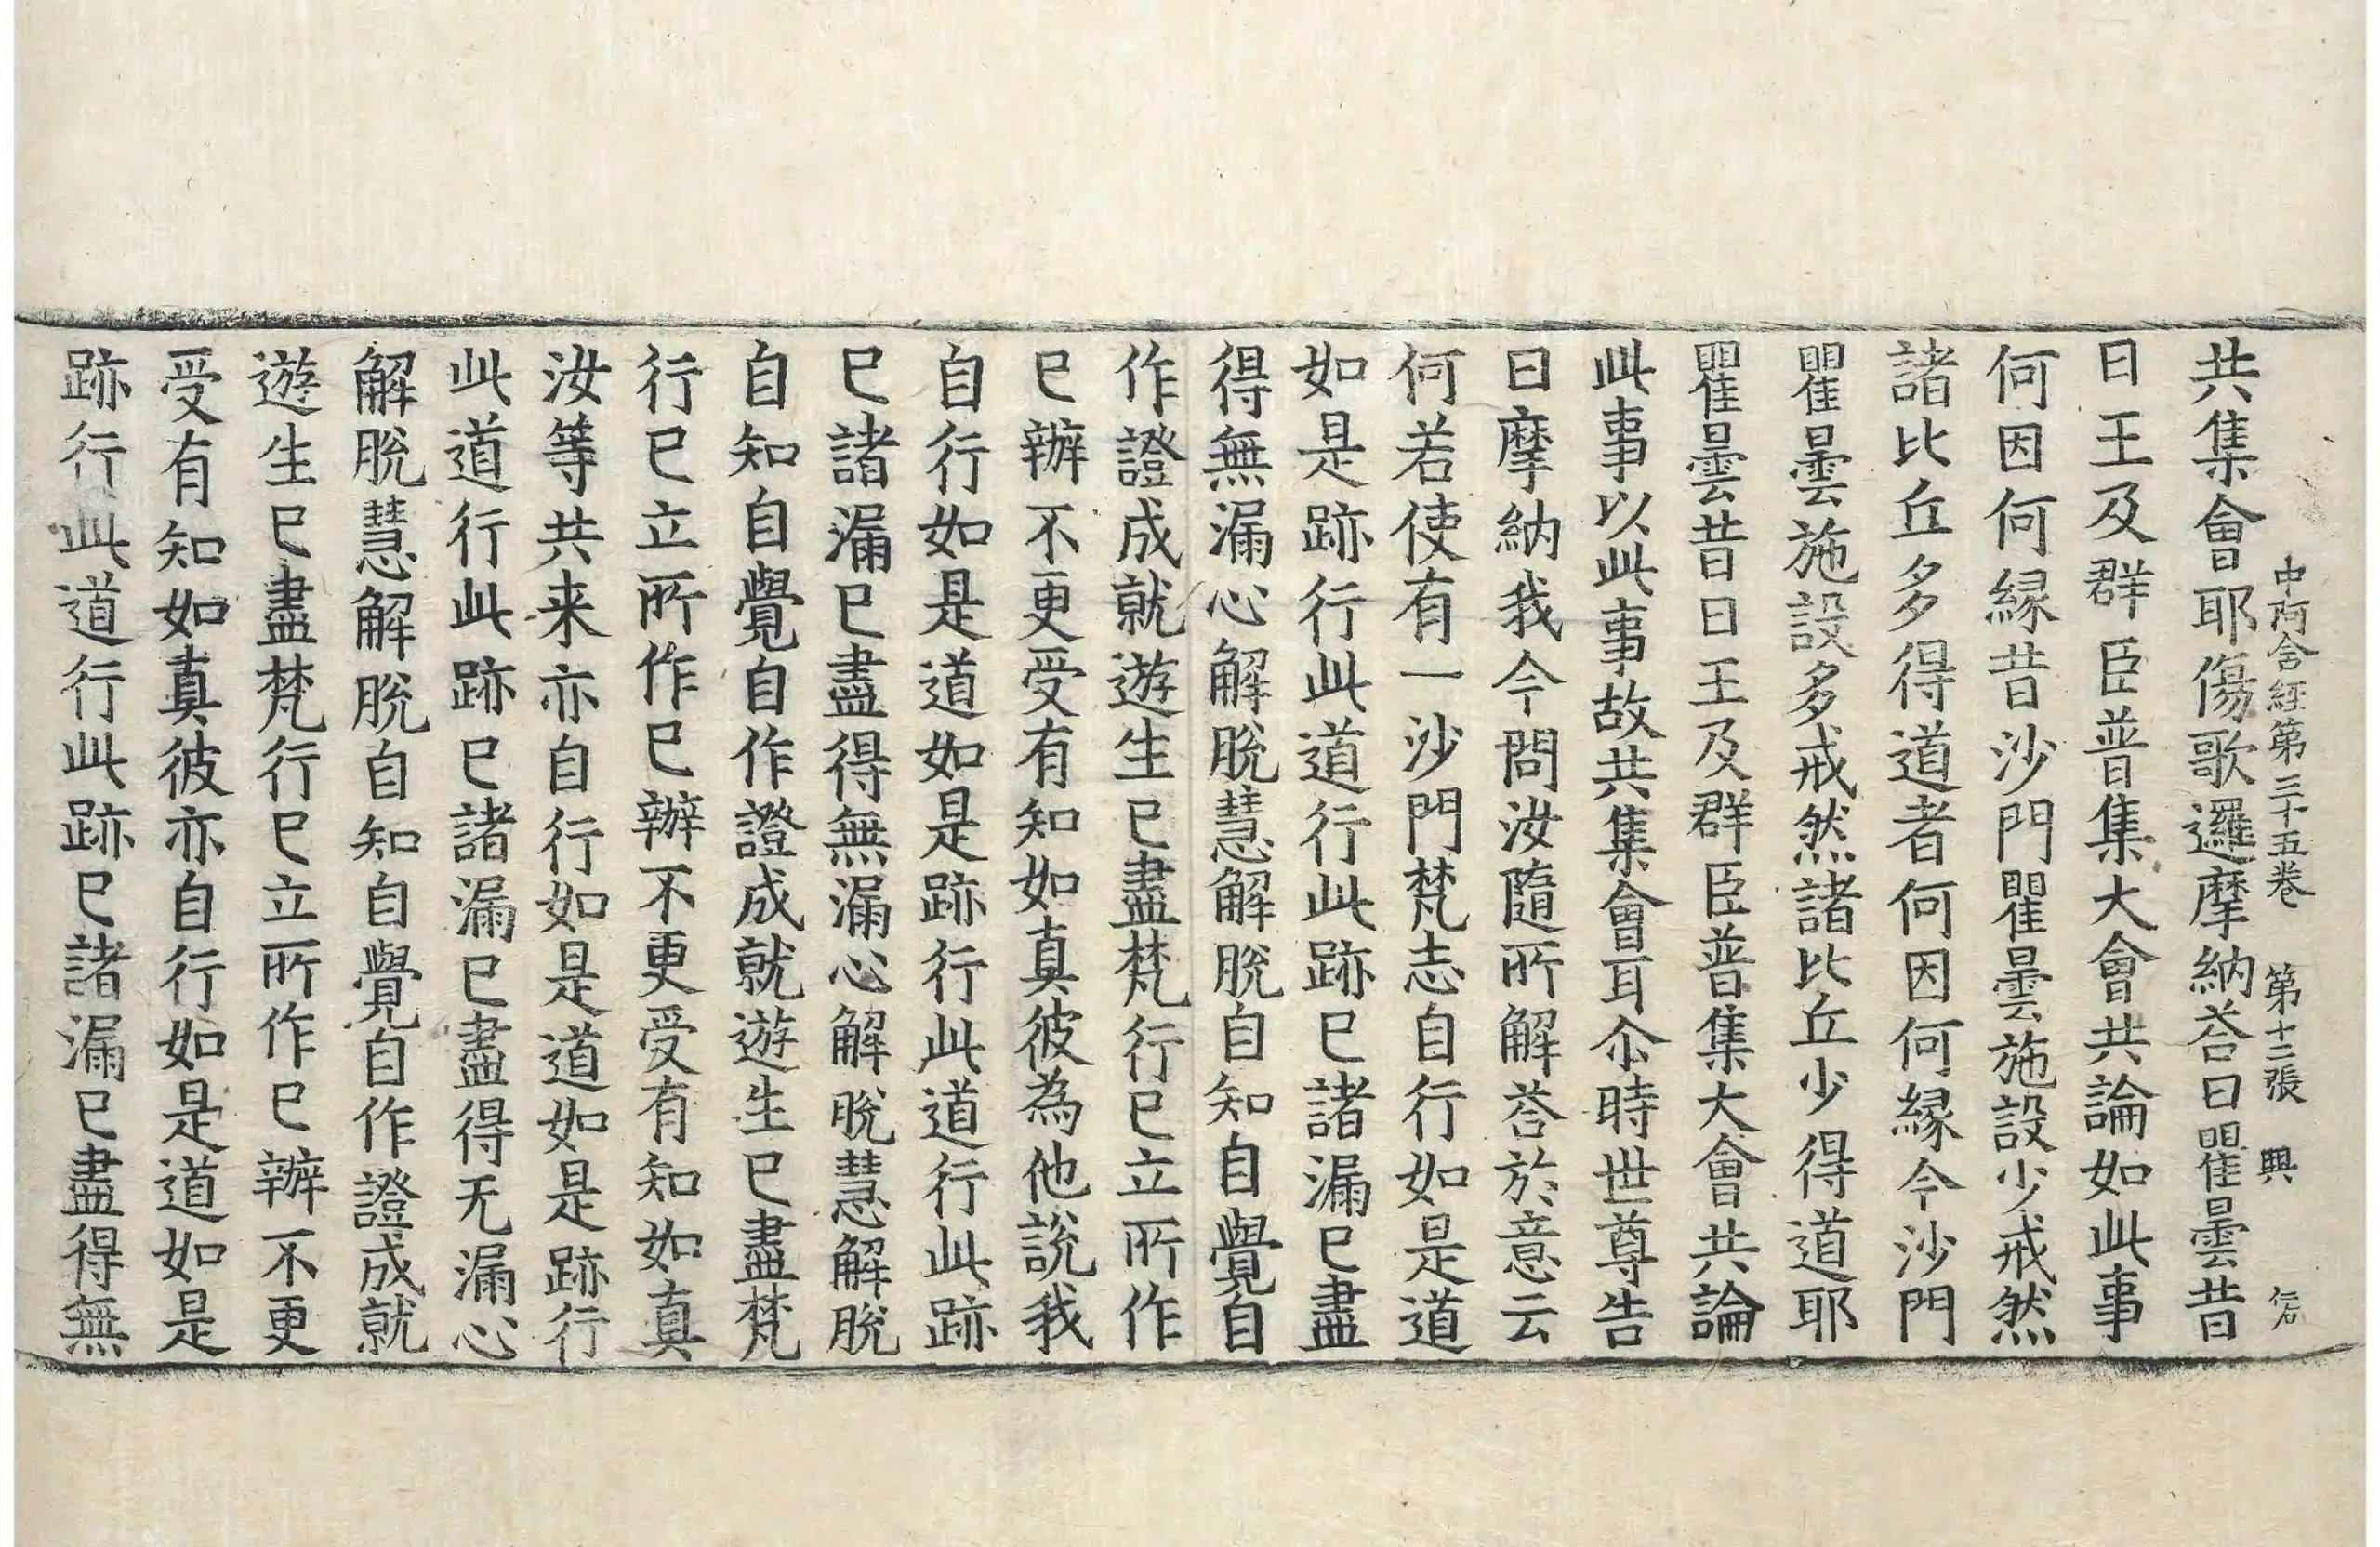 中阿含經第三十五卷　第十二張　興
共集會耶傷歌邏摩納荅曰瞿曇昔
日王及群臣普集大會共論如此事
何因何縁昔沙門瞿曇施設少戒然
諸比丘多得道者何因何縁今沙門
瞿曇施設多戒然諸比丘少得道耶
瞿曇昔日王及群臣普集大會共論
此事以此事故共集會耳尒時世尊告
曰摩納我今問汝隨所解荅於意云
何若使有一沙門梵志自行如是道
如是跡行此道行此跡已諸漏已盡
得無漏心解脫慧解脫自知自覺自
作證成就遊生已盡梵行已立所作
已辦不更受有知如真彼為他說我
自行如是道如是跡行此道行此跡
已諸漏已盡得無漏心解脫慧解脫
自知自覺自作證成就遊生已盡梵
行已立所作已辦不更受有知如真
汝等共来亦自行如是道如是跡行
此道行此跡已諸漏已盡得无漏心
解脫慧解脫自知自覺自作證成就
遊生已盡梵行已立所作已辦不更
受有知如真彼亦自行如是道如是
跡行此道行此跡已諸漏已盡得無